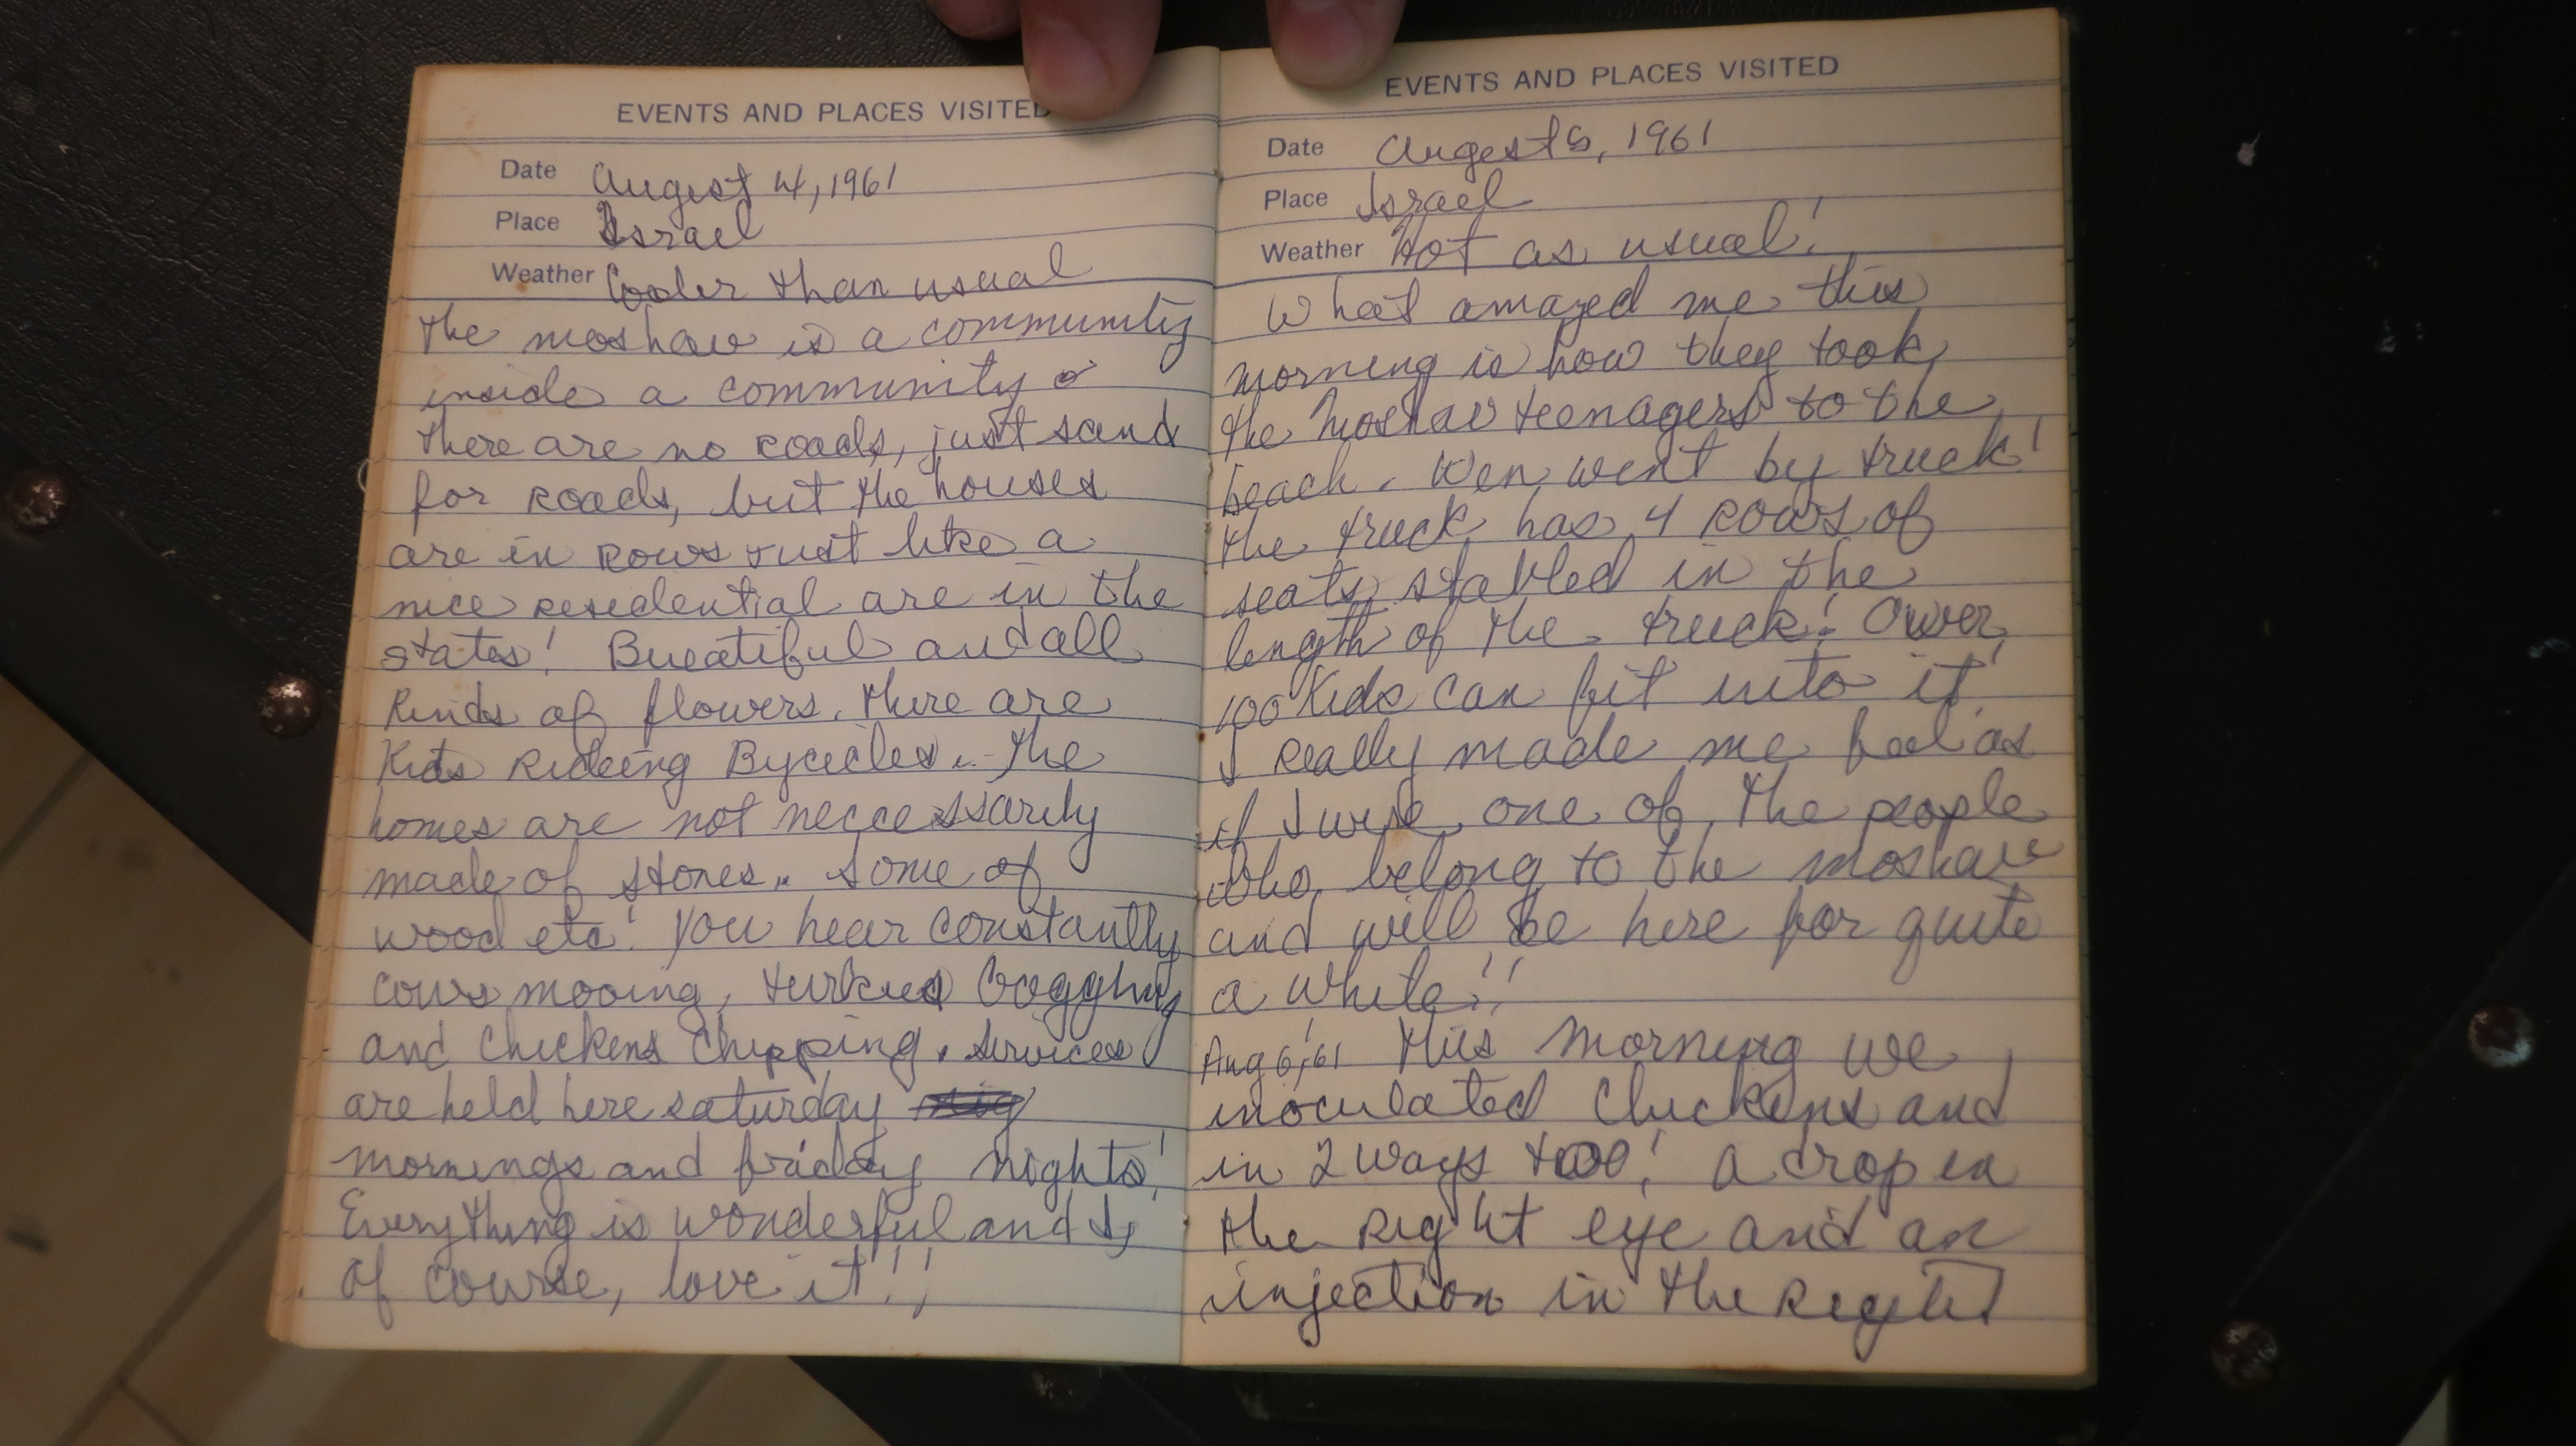 EVENTS AND PLACES VISITED
Date August 4, 1961
Place Israel
Weather Cooler than usual
The moshav is a community
inside a community
there are no roads, just sand
for roads, but the houses
are in rows just like a
nice resedential are in the
states! Bueatiful and all
kinds of flowers. There are
Kids Rideing Bycicles... The
homes are not neccessarily
made of stones.. some of
wood etc! You hear constantly
cows mooing, turkies
and Chickens Chipping. Services
are held here saturday
mornings and friday nights!
Everything is wonderful and I,
of course, love it!!!
EVENTS AND PLACES VISITED
Date August 5, 1961
Place Israel
Weather Hot as usual!
What amazed me this
morning is how they took
the Moshav teenagers to the
beach. Wen went by truck!
the truck has 4 rows of
seats stabled in the
length of the truck! Over
100 Kids can fit into it!
I really made me feel as
if I were one of the people
who belong to the moshav
and will be here for quite
a while!!
Aug 6, '61 This Morning we
inoculated Chickens and
in 2 ways too! A drop in
the Right eye and an
injection in the Right